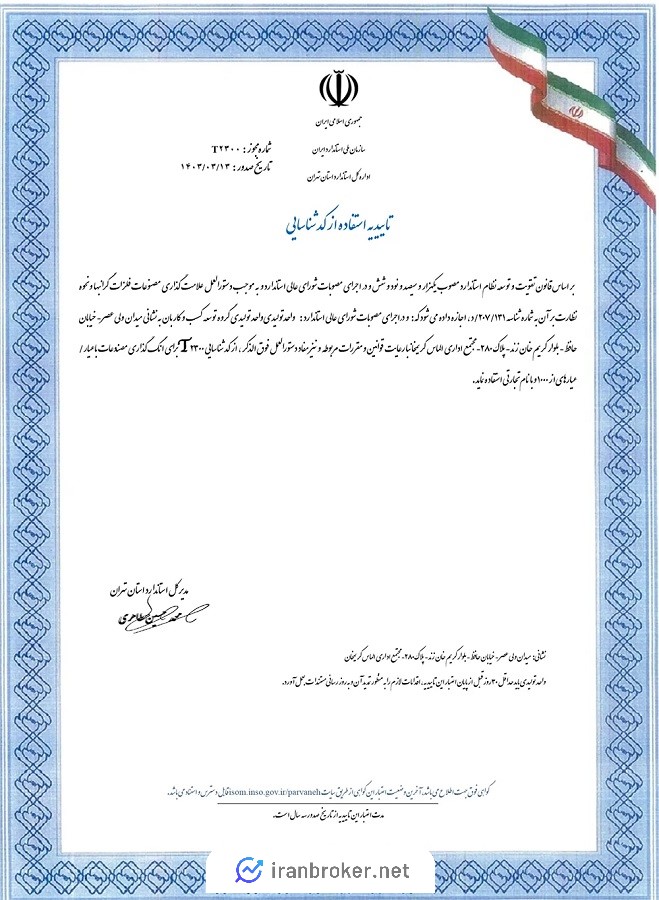 جمهوری اسلامی ایران
سازمان ملی استاندارد ایران
اداره کل استاندارد استان تهران
شماره مجوز : T۲۳۰۰
تاریخ صدور : ۱۴۰۳/۰۳/۱۳
تاییدیه استفاده از کد شناسایی
بر اساس قانون تقویت و توسعه نظام استاندارد مصوب یکهزار و سیصد و نود و شش و در اجرای مصوبات شورای عالی استاندارد و به موجب دستورالعمل علامت گذاری مصنوعات فلزات گرانبها و نحوه
نظارت بر آن به شماره شناسه ۲۰۷/۱۳۱/د، اجازه داده می شود که: و در اجرای مصوبات شورای عالی استاندارد: واحد تولیدی واحد تولیدی گروه توسعه کسب و کار مان به نشانی میدان ولی عصر - خیابان
حافظ - بلوار کریم خان زند - پلاک ۲۸۰ - مجتمع اداری الماس کریمخان با رعایت قوانین و مقررات مربوطه و نیز مفاد دستورالعمل فوق الذکر، از کد شناسایی T۲۳۰۰ برای انگ گذاری مصنوعات با عیار /
عیارهای از ۱۰۰۰ و با نام تجارتی استفاده نماید.
مدیر کل استاندارد استان تهران
محمد حسین طاهری
نشانی: میدان ولی عصر - خیابان حافظ - بلوار کریم خان زند - پلاک ۲۸۰ - مجتمع اداری الماس کریمخان
واحد تولیدی باید حداقل ۳۰ روز قبل از پایان اعتبار این تاییدیه، اقدامات لازم را به منظور تمدید آن و به روز رسانی مستندات بعمل آورد.
گواهی فوق جهت اطلاع می باشد. آخرین وضعیت اعتبار این گواهی از طریق سایت isom.inso.gov.ir/parvaneh قابل دسترس و استناد می باشد.
مدت اعتبار این تاییدیه از تاریخ صدور سه سال است.
iranbroker.net